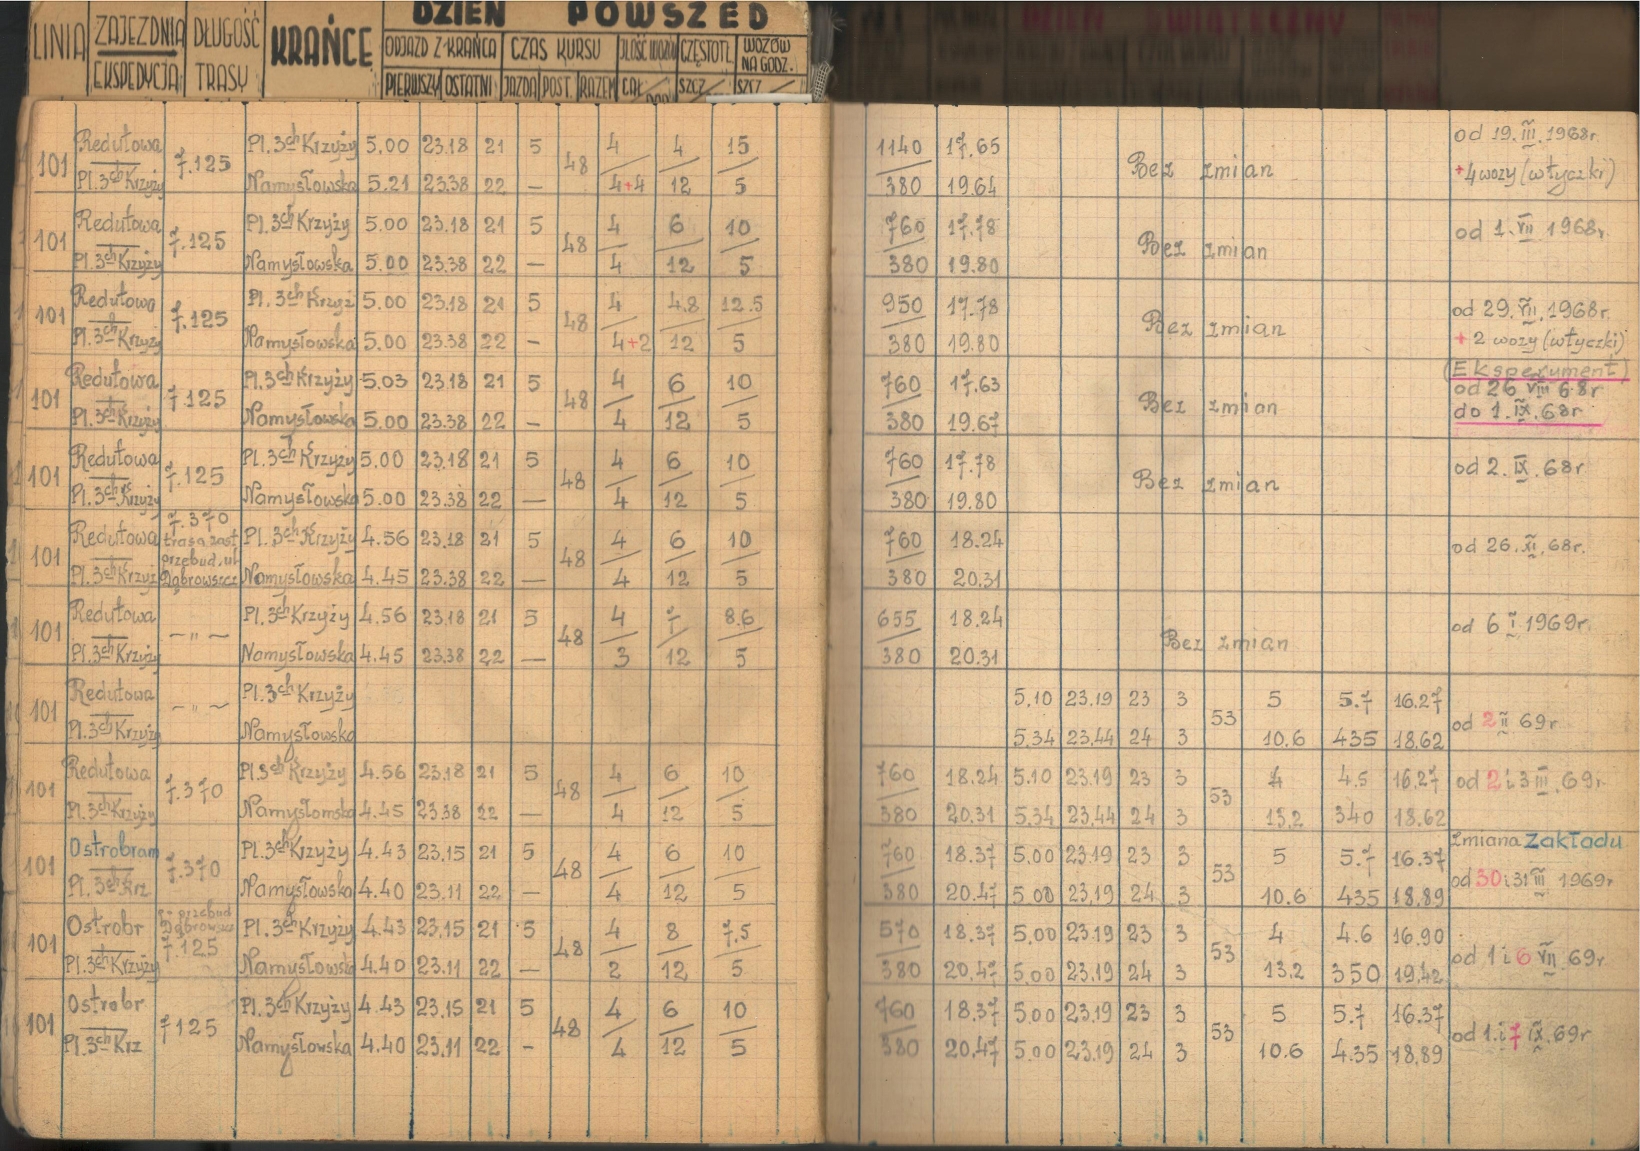 LINIA ZAJEZDNIA DŁUGOŚĆ KRAŃCE DZIEŃ POWSZED
EKSPEDYCJA TRASY ODJAZD Z KRAŃCA CZAS KURSU ILOŚĆ WOZÓW CZĘSTOTL. WOZÓW NA GODZ.
PIERWSZY OSTATNI JAZDA POST. RAZEM CAŁ. SZCZ SZCZ
DZIEŃ ŚWIĄTECZNY
101 Redutowa 7.125 Pl. 3ch Krzyży 5.00 23.18 21 5 48 4 4 15 1140 17.65 Bez zmian od 19.III.1968r.
Pl. 3ch Krzyży Namysłowska 5.21 23.38 22 — 4+4 12 5 380 19.64 +4 wozy (wtyczki)
101 Redutowa 7.125 Pl. 3ch Krzyży 5.00 23.18 21 5 48 4 6 10 760 17.78 Bez zmian od 1.VII 1968r.
Pl. 3ch Krzyży Namysłowska 5.00 23.38 22 — 4 12 5 380 19.80
101 Redutowa 7.125 Pl. 3ch Krzyż 5.00 23.18 21 5 48 4 4.8 12.5 950 17.78 Bez zmian od 29.VII.1968r.
Pl. 3ch Krzyży Namysłowska 5.00 23.38 22 — 4+2 12 5 380 19.80 + 2 wozy (wtyczki)
101 Redutowa 7.125 Pl. 3ch Krzyży 5.03 23.18 21 5 48 4 6 10 760 17.63 Bez zmian (Eksperument)
od 26 VIII 68r
Pl. 3ch Krzyży Namysłowska 5.00 23.38 22 — 4 12 5 380 19.67 do 1.IX.68r
101 Redutowa 7.125 Pl. 3ch Krzyży 5.00 23.18 21 5 48 4 6 10 760 17.78 Bez zmian od 2.IX.68r
Pl. 3ch Krzyży Namysłowska 5.00 23.38 22 — 4 12 5 380 19.80
101 Redutowa 7.370 trasa zast przebud. ul Dąbrowszcz Pl. 3ch Krzyży 4.56 23.18 21 5 48 4 6 10 760 18.24 od 26.XI.68r.
Pl. 3ch Krzyż Namysłowska 4.45 23.38 22 — 4 12 5 380 20.31
101 Redutowa — " — Pl. 3ch Krzyży 4.56 23.18 21 5 48 4 7 8.6 655 18.24 Bez zmian od 6 I 1969r.
Pl. 3ch Krzyży Namysłowska 4.45 23.38 22 — 3 12 5 380 20.31
101 Redutowa — " — Pl. 3ch Krzyży 5.10 23.19 23 3 53 5 5.7 16.27 od 2 II 69r
Pl. 3ch Krzyży Namysłowska 5.34 23.44 24 3 10.6 435 18.62
101 Redutowa 7.370 Pl. 3ch Krzyży 4.56 23.18 21 5 48 4 6 10 760 18.24 5.10 23.19 23 3 53 4 4.5 16.27 od 2 i 3 III.69r.
Pl. 3ch Krzyży Namysłomska 4.45 23.38 22 — 4 12 5 380 20.31 5.34 23.44 24 3 13.2 340 18.62
101 Ostrobram 7.370 Pl. 3ch Krzyży 4.43 23.15 21 5 48 4 6 10 760 18.37 5.00 23.19 23 3 53 5 5.7 16.37 Zmiana Zakładu
Pl. 3ch Krz Namysłowska 4.40 23.11 22 — 4 12 5 380 20.47 5.00 23.19 24 3 10.6 435 18.89 od 30 i 31 III 1969r
101 Ostrobr przebud Dąbrowszcz 7.125 Pl. 3ch Krzyży 4.43 23.15 21 5 48 4 8 7.5 570 18.37 5.00 23.19 23 3 53 4 4.6 16.90 od 1 i 6 VII.69r.
Pl. 3ch Krzyży Namysłowska 4.40 23.11 22 — 2 12 5 380 20.47 5.00 23.19 24 3 13.2 350 19.42
101 Ostrobr 7.125 Pl. 3ch Krzyży 4.43 23.15 21 5 48 4 6 10 760 18.37 5.00 23.19 23 3 53 5 5.7 16.37 od 1.i 7 IX.69r
Pl. 3ch Krz Namysłowska 4.40 23.11 22 - 4 12 5 380 20.47 5.00 23.19 24 3 10.6 4.35 18.89